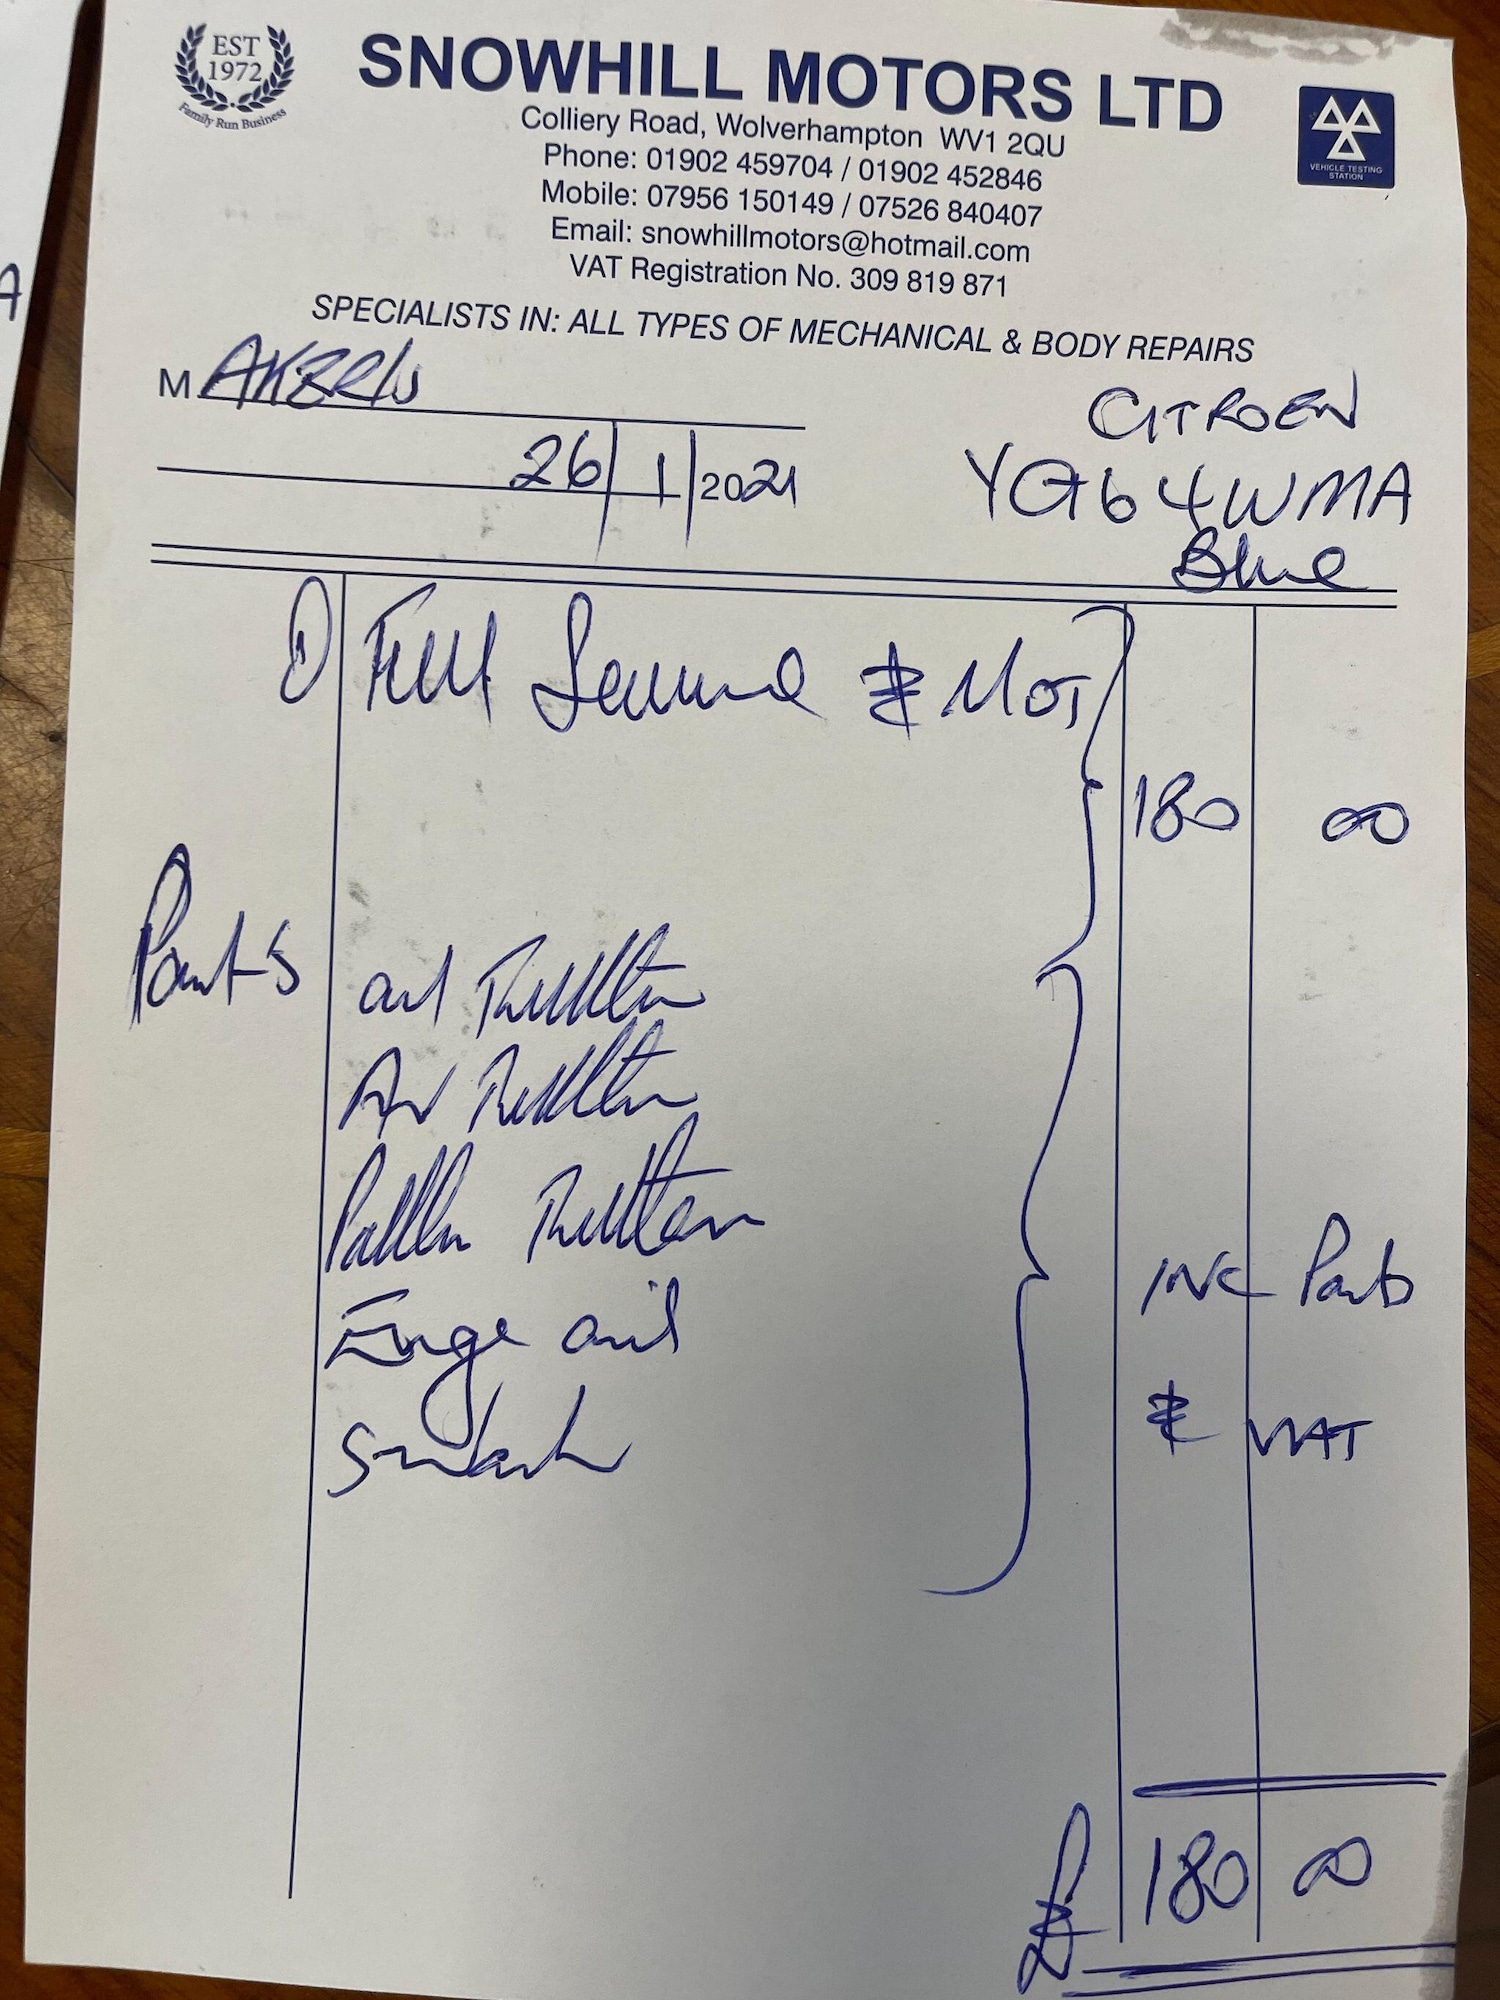 EST
1972
Family Run Business
SNOWHILL MOTORS LTD
Colliery Road, Wolverhampton WV1 2QU
Phone: 01902 459704 / 01902 452846
Mobile: 07956 150149 / 07526 840407
Email: snowhillmotors@hotmail.com
VAT Registration No. 309 819 871
VEHICLE TESTING
STATION
SPECIALISTS IN: ALL TYPES OF MECHANICAL & BODY REPAIRS
M
CITROEN
26/1/2021
YG64WMA
Blue
① Full Service & MOT
180 00
Parts oil Filter
Air Filter
Pollen Filter
INC Parts
Enge oil
& VAT
£ 180 00